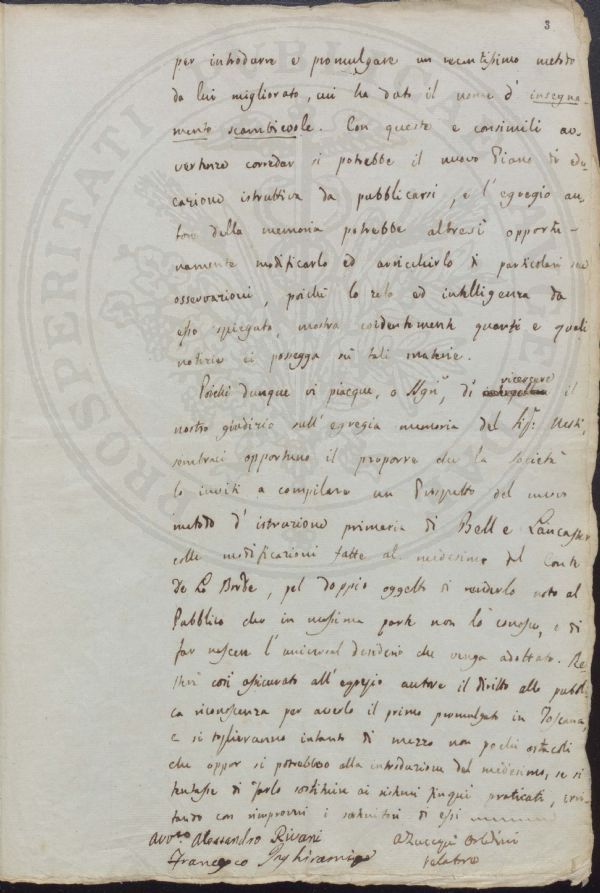 3
per introdurre e promulgare un recentissimo metodo
da lui migliorato, cui ha dato il nome d' insegna-
mento scambievole. Con queste e consimili av-
vertenze corredar si potrebbe il nuovo Piano di edu-
cazione istruttiva da pubblicarsi, e l'egregio au-
tore della memoria potrebbe altresì opportu-
namente modificarlo ed arricchirlo di particolari sue
osservazioni, poichè lo zelo ed intelligenza da
esso spiegato, mostra evidentemente quante e quali
notizie ei possegga su tali materie.
Poichè dunque vi piacque, o Sign.ri, di ricercare il
nostro giudizio sull'egregia memoria del Sig.r Nesti,
sembraci opportuno il proporre che la Società
lo inviti a compilare un Prospetto del nuovo
metodo d'istruzione primaria di Bell e Lancaster
colle modificazioni fatte al medesimo dal Conte
De La Borde, pel doppio oggetto di renderlo noto al
Pubblico che in massima parte non lo conosce, e di
far nascere l'universal desiderio che venga adottato. Re-
sterà così assicurato all'egregio autore il diritto alla pubbli-
ca riconoscenza per averlo il primo promulgato in Toscana,
e si toglieranno intanto di mezzo non pochi ostacoli
che oppor si potrebbero alla introduzione del medesimo, se si
tentasse di farlo sostituire ai sistemi finqui praticati,
tando con rimproveri i sostenitori di essi
Avv.to Alessandro Rivani
Francesco Inghirami
Attaccagni Orlandini
relatore
PROSPERITATI PUBLICAE AUGENDAE